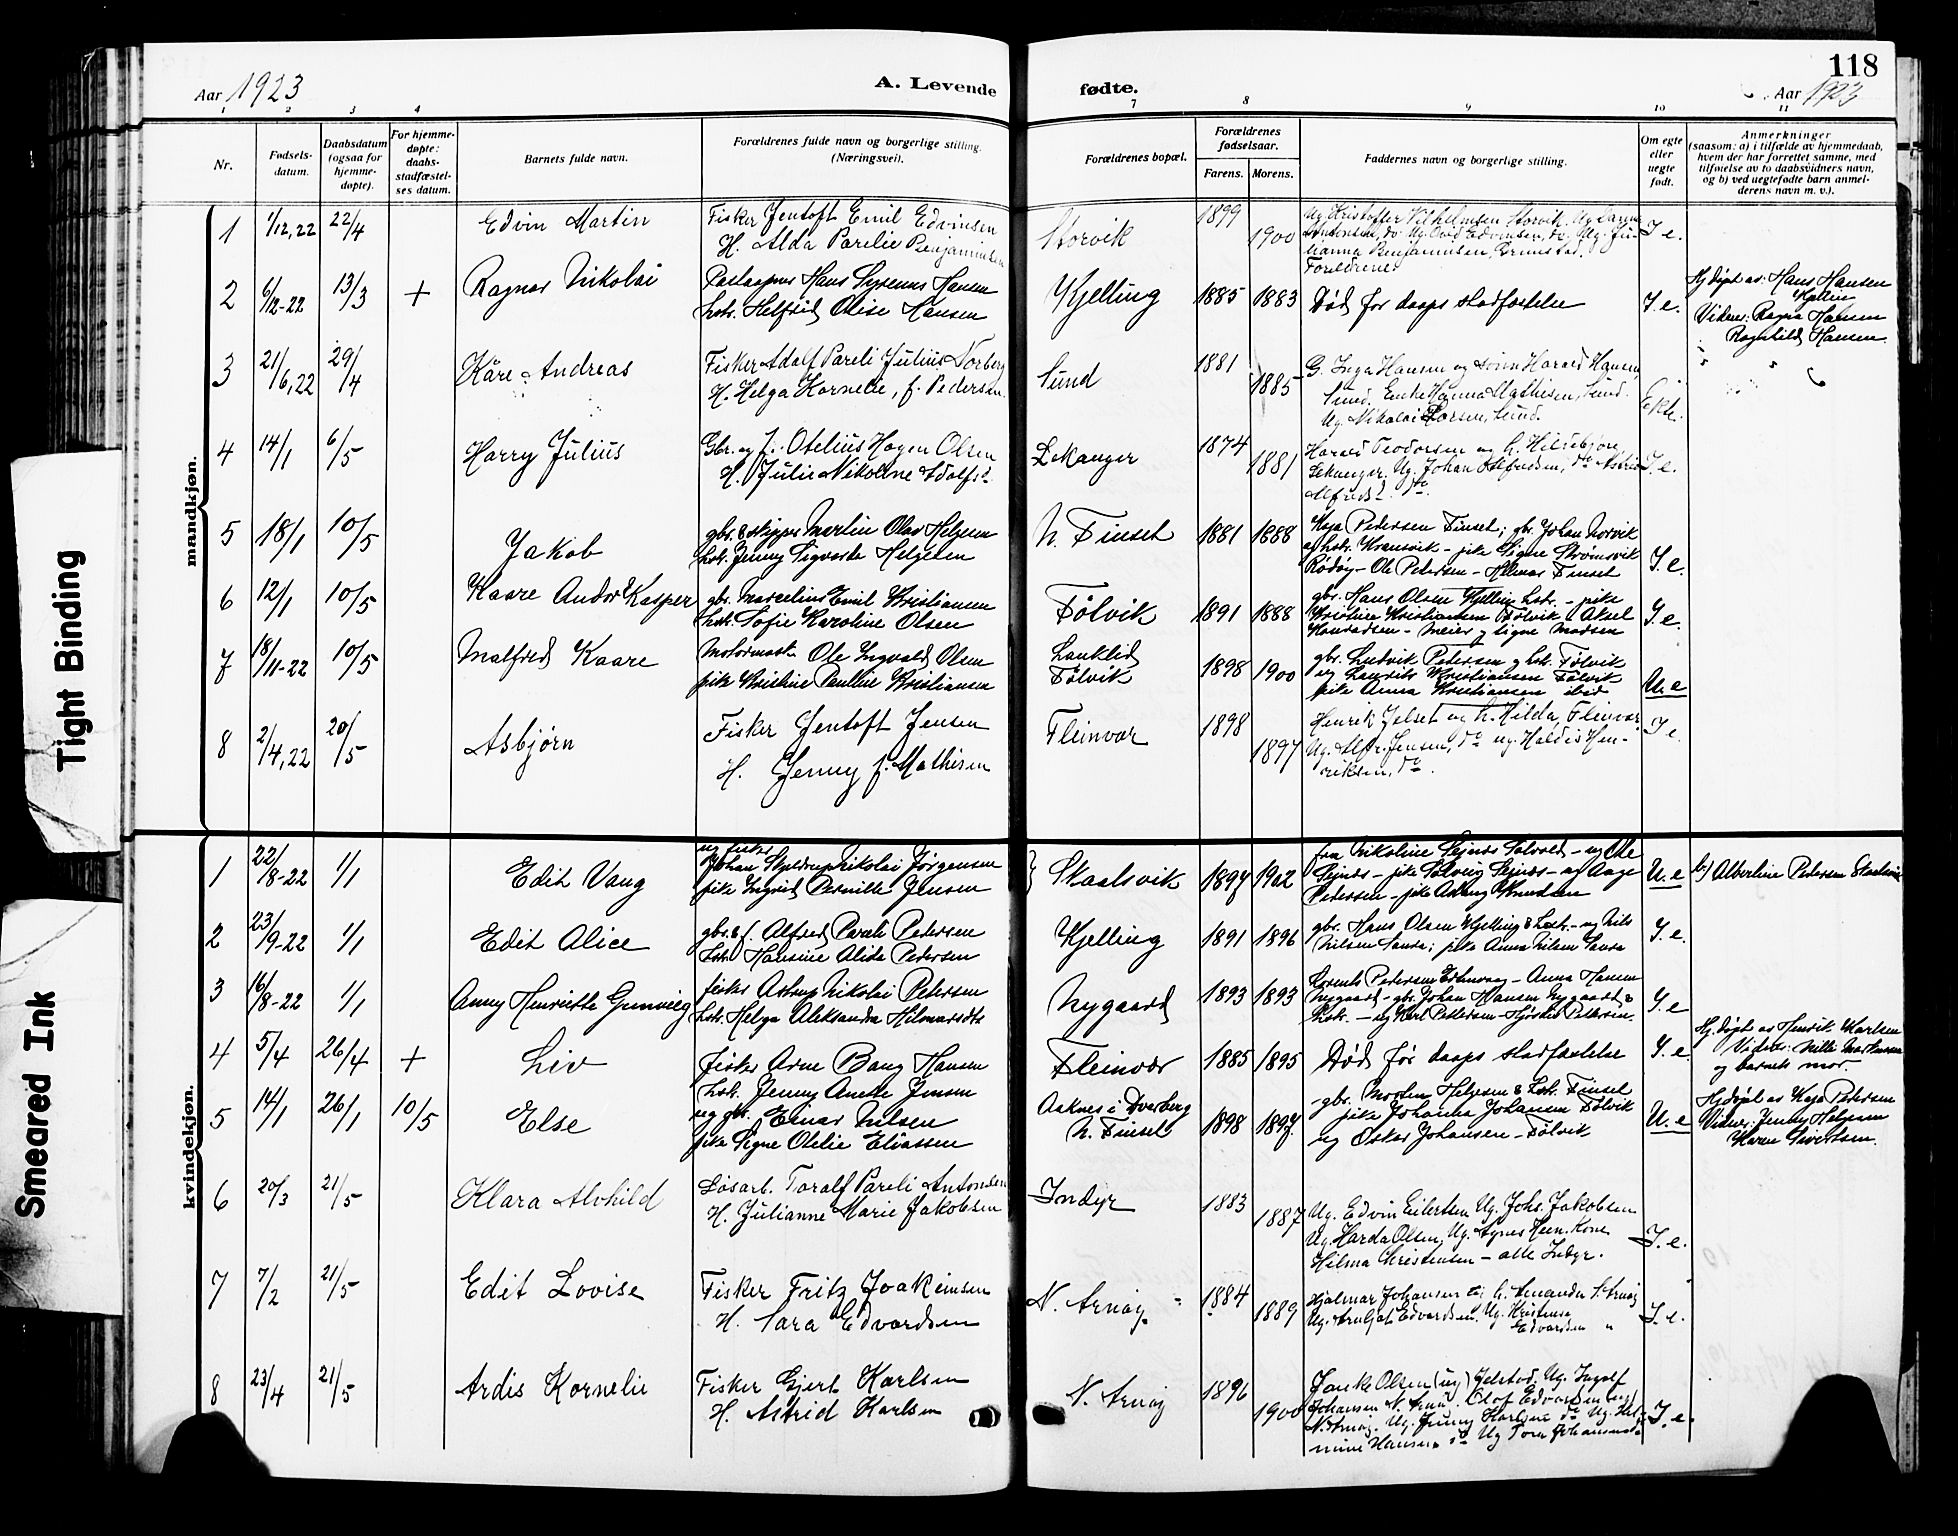 118
Aar 1923
A. Levende fødte.
Aar 1923
1 2 3 4 7 8 9 10 11
Nr.
Fødsels-
datum.
Daabsdatum
(ogsaa for
hjemme-
døpte).
For hjemme-
døpte:
daabs-
stadfæstel-
ses datum.
Barnets fulde navn.
Forældrenes fulde navn og borgerlige stilling.
(Næringsvei).
Forældrenes bopæl.
Forældrenes
fødselsaar.
Farens. Morens.
Faddernes navn og borgerlige stilling.
Om egte
eller
uegte
født.
Anmerkninger
(saasom: a) i tilfælde av hjemmedaab,
hvem der har forrettet samme, med
tilføielse av to daabsvidners navn,
og b) ved uegtefødte barn anmel-
derens navn m. v.).
mandkjøn.
1 1/12,22 22/4 Edvin Martin
Fisker Jentoft Emil Edvinsen
H. Alda Parelie Benjaminsen
Storvik 1899 1900
Ug. Kristoffer Vilhelmsen Storvik, Ug.
Foreldrene
I e.
2 6/12-22 13/3 + Ragnar Nikolai
Hans Syrenus Hansen
hstr. Helfrid Olise Hansen
Kjelling 1885 1883 Død før daaps stadfæstelse I e.
Hj. døpt av: Hans Hansen
Kjelling
Vidner: Ragna Hansen
Ragnhild Hansen
3 21/6,22 29/4 Kåre Andreas
Fisker Adolf Pareli Julius Norberg
H. Helga Kornelie, f. Pedersen
Sund 1881 1885
G. Inga Hansen og sønn Harald Hansen,
Sund. Enke Hanna Mathisen, Sund.
Ug. Nikolai Larsen, Sund.
Ekte.
4 14/1 6/5 Harry Julius
Gbr. og f. Otelius Hagen Olsen
H. Julie Nikoline Adolfsd.
Lekanger 1874 1881
Harald Teodorsen og h. Hildebjørg
Lekanger. Ug. Johan Alfredsen, do Astrid
Alfredsd. do.
I e.
5 18/1 10/5 Jakob
gbr. & skipper Martin Olav Helgesen
hstr. Jenny Sigvarda Helgesen
N. Finset 1881 1888
Kaja Pedersen Finset; gbr. Johan Norvik
og hstr. - pike Signe Strømsvik
Rødøy - Ole Petersen - Helmar Finset
I e.
6 12/1 10/5 Kaare Andor Kasper
gbr. Marcelius Emil Kristiansen
hstr. Sofie Karoline Olsen
Følvik 1891 1888
gbr. Hans Olsen Kjelling hstr. - pike
Kristine Kristiansen Følvik - Aksel
Konradsen - Meier og Signe Madsen
I e.
7 18/11-22 10/5 Malfred Kaare
Motormask. Ole Ingvald Olsen
pike Kristine Pauline Kristiansen
Følvik 1898 1900
gbr. Ludvik Petersen og hstr. Følvik
ug Laurits Kristiansen Følvik
pike Anna Kristiansen ibid
U. e
8 2/4,22 20/5 Asbjørn
Fisker Jentoft Jensen
H. Jenny f. Mathisen
Fleinvær 1898 1897
Henrik Jelset og h. Hilda, Fleinvær
Ug. Alfr. Jensen, do ug. Haldis Hen-
riksen, do.
I e.
kvindekjøn.
1 22/8-22 1/1 Edit Vang
ug fisker
Johan Skjeldrup Nikolai Jørgensen
pike Ingrid Pernille Jensen
Skaalsvik 1897 1902
fru Nikoline Sejnæs Solvold - ug Ole
Sejnæs - pike Solveig Sejnæs - ug Aage
Pedersen - pike Aslaug Knudsen
U. e
b) Albertine Pedersen Skaalsvik
2 23/9-22 1/1 Edit Alice
gbr. & f. Alfred Pareli Petersen
hstr. Hansine Alida Petersen
Kjelling 1891 1896
gbr. Hans Olsen Kjelling & hstr. - ug Nils
Nilsen Sandø; pike Anna Nilsen Sandø
I. e.
3 16/8-22 1/1 Anny Henriette Gunveig
fisker Astrup Nikolai Petersen
hstr. Helga Aleksandra Hilmarsdtr
Nygaard 1893 1893
Lorents Petersen - Anna Hansen
Nygaard - gbr. Johan Hansen Nygaard &
hstr. - ug Karl Pettersen - Hjørdis Pettersen.
I. e
4 5/4 26/4 + Liv
fisker Arne Bang Hansen
hstr. Jenny Anette Jensen
Fleinvær 1885 1895 Død før daaps stadfæstelse I. e
Hj. døpt av Henrik Karlsen
Vidner: Nille Markussen
og barnets mor.
5 14/1 26/1 10/5 Else
ug gbr. Einar Nilsen
pike Signe Otelie Eliassen
Aaknes i Dverberg
N. Finset 1898 1897.
gbr. Morten Helgesen & hstr. Finset
pike Johanna Johansen Følvik
ug Oskar Johansen - Følvik
U. e
Hj. døpt av Kaja Petersen
Vidner: Jenny Helgesen
Maren Sivertsen.
6 20/3 21/5 Klara Alvhild
Løsarb. Toralf Pareli Antonsen
H. Julianne Marie Jakobsen
Indyr 1883 1887
Ug. Edvin Eilertsen Ug. Johs. Jakobsen
Ug. Harda Olsen, Ug. Agnes Heen. Kone
Hilma Kristensen - alle Indyr.
I. e.
7 7/2 21/5 Edit Lovise
Fisker Fritz Joakimsen
H. Sara Edvardsen
N. Arnøy 1884 1889
Hjalmar Johansen og h. Amanda S. Arnøy
Ug. Edvardsen Ug. Kristense
Edvardsen "
I. e.
8 23/4 21/5 Ardis Kornelie
Fisker Gjert Karlsen
H. Astrid Karlsen
N. Arnøy 1896 1900
Olsen (ug) Jelstad. Ug. Ingolf
Johansen N. Arnøy. Olaf Edvardsen (ug)
N. Arnøy. Ug. Jenny Karlsen do Ug. Hel-
mine Hansen do Ug Tora Johansen do
I. e.
Tight Binding
Smeared Ink